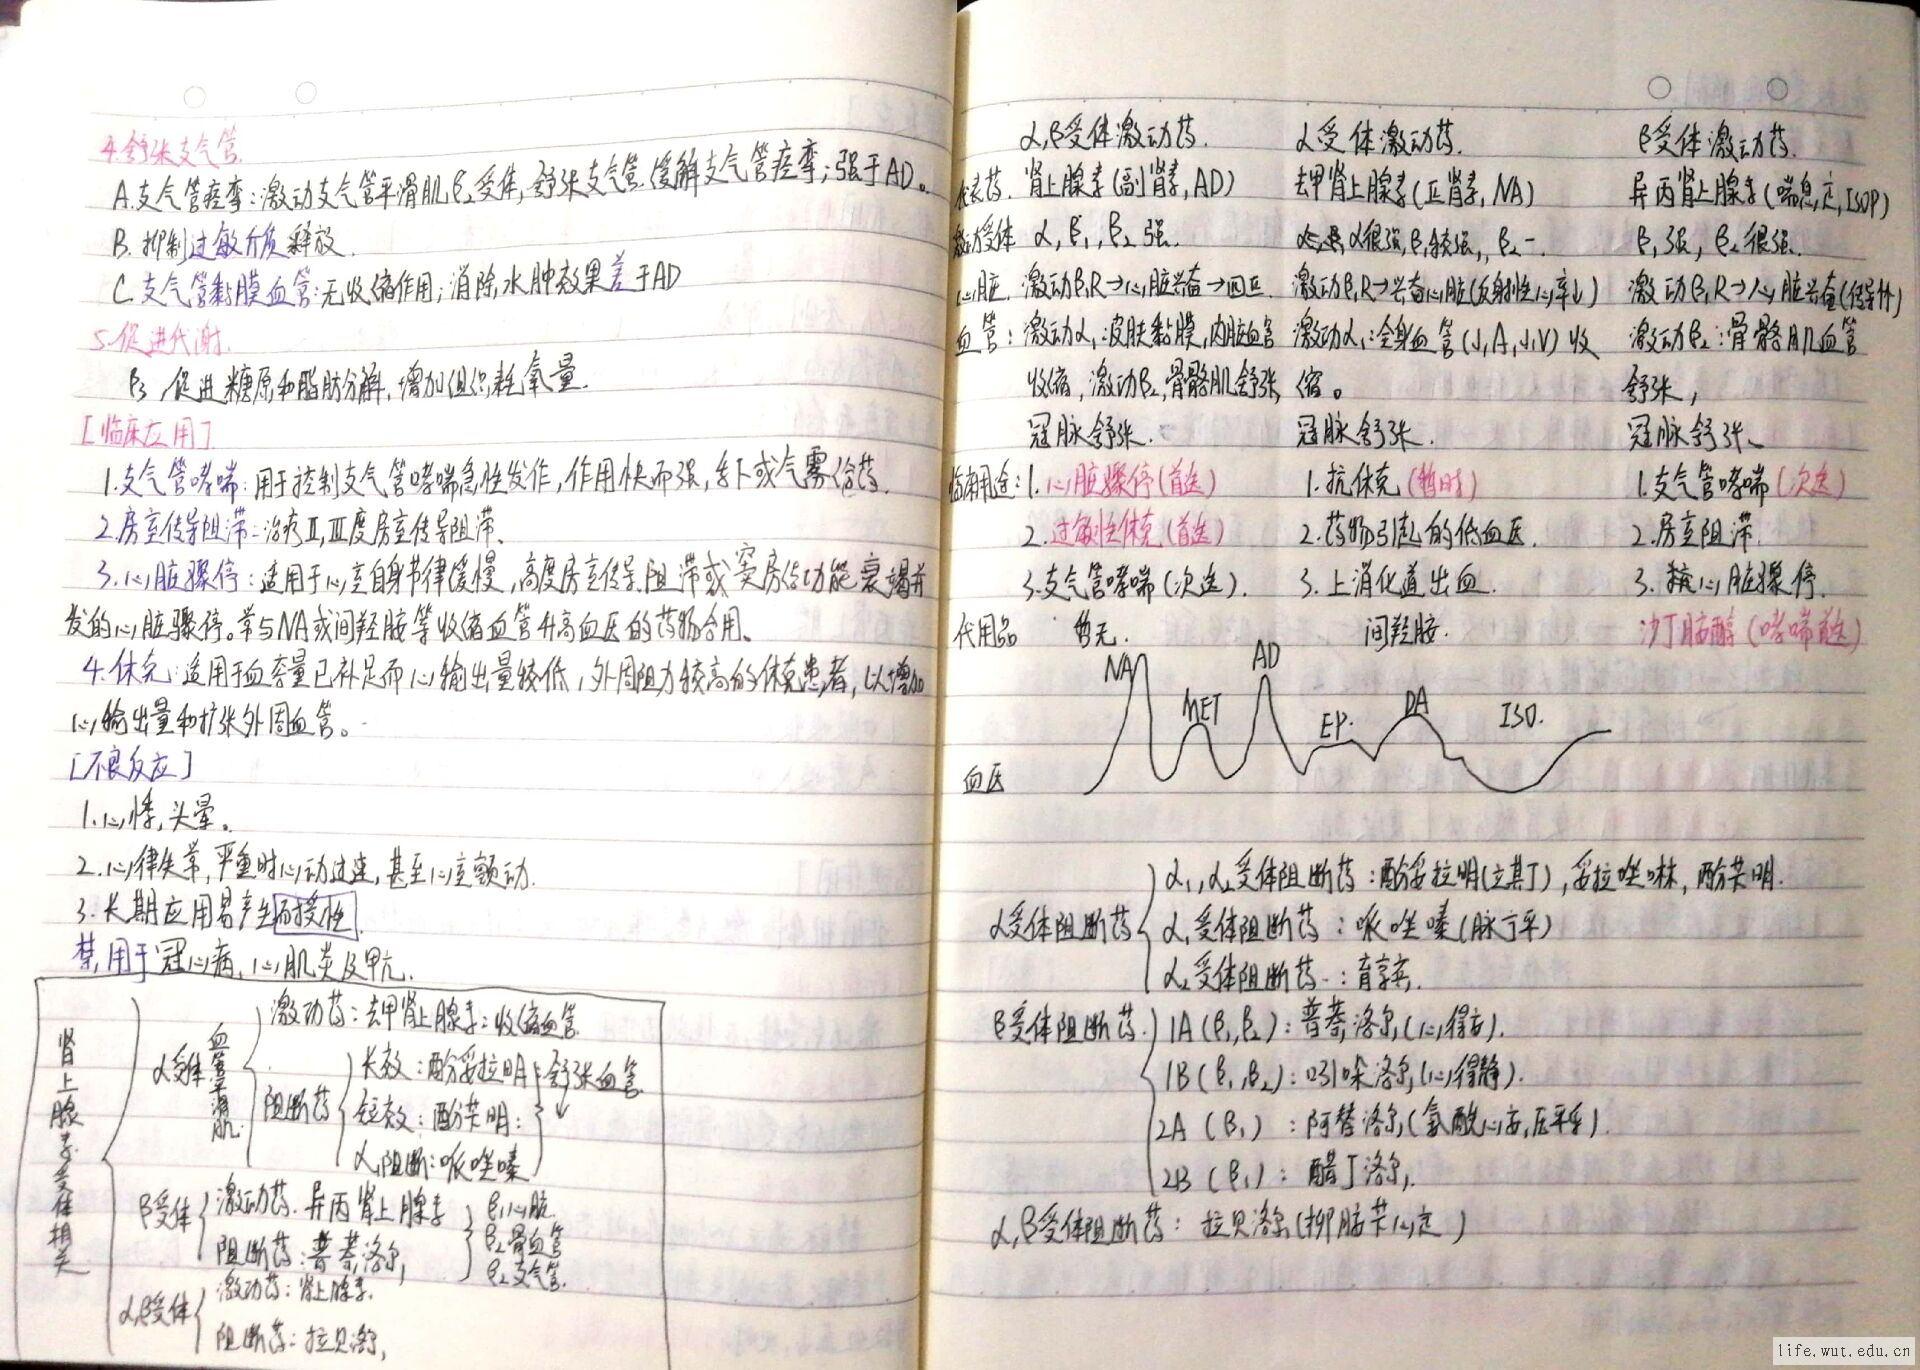 4.舒张支气管
A.支气管痉挛：激动支气管平滑肌β₂受体，舒张支气管.缓解支气管痉挛；强于AD。
B.抑制过敏介质释放.
C.支气管黏膜血管：无收缩作用；消除水肿效果差于AD
5.促进代谢.
β₃ 促进糖原和脂肪分解，增加组织耗氧量.
[临床应用]
1.支气管哮喘：用于控制支气管哮喘急性发作，作用快而强，舌下或气雾给药.
2.房室传导阻滞：治疗Ⅱ,Ⅲ度房室传导阻滞、
3.心脏骤停：适用于心室自身节律缓慢，高度房室传导阻滞或窦房结功能衰竭并
发的心脏骤停。常与NA或间羟胺等收缩血管升高血压的药物合用、
4.休克：适用于血容量已补足而心输出量较低，外周阻力较高的休克患者，以增加
心输出量和扩张外周血管。
[不良反应]
1.心悸,头晕。
2.心律失常,严重时心动过速,甚至心室颤动.
3.长期应用易产生耐受性.
禁用于冠心病,心肌炎及甲亢.
肾上腺素受体相关
α受体 血管平滑肌
激动药：去甲肾上腺素：收缩血管
阻断药
长效：酚妥拉明 舒张血管
短效：酚苄明：
α₁阻断：哌唑嗪
β受体
激动药.异丙肾上腺素 β₁心脏
阻断药：普萘洛尔, β₂骨血管
β₂支气管.
α,β受体
激动药：肾上腺素.
阻断药：拉贝洛尔,
α,β受体激动药. α受体激动药. β受体激动药.
代表药. 肾上腺素(副肾素,AD) 去甲肾上腺素(正肾素,NA) 异丙肾上腺素(喘息定,ISOP)
激动受体 α,β₁,β₂强. α很强,β₁较强,β₂- β₁强,β₂很强.
心脏. 激动β₁R→心脏兴奋→四正 激动β₁R→兴奋心脏(反射性心率↓) 激动β₁R→心脏兴奋(传导↑↑)
血管：激动α₁:皮肤黏膜,内脏血管 激动α₁:全身血管(小A,小V)收 激动β₂:骨骼肌血管
收缩,激动β₂,骨骼肌舒张 缩。 舒张,
冠脉舒张. 冠脉舒张. 冠脉舒张、
临床用途：1.心脏骤停(首选) 1.抗休克(暂时) 1.支气管哮喘(次选)
2.过敏性休克(首选) 2.药物引起的低血压. 2.房室阻滞.
3.支气管哮喘(次选). 3.上消化道出血. 3.心脏骤停.
代用品 暂无. 间羟胺. 沙丁胺醇(哮喘首选)
NA MET AD EP. DA ISO.
血压
α受体阻断药
α₁,α₂受体阻断药：酚妥拉明(立其丁),妥拉唑啉,酚苄明.
α₁受体阻断药：哌唑嗪(脉宁平)
α₂受体阻断药：育亨宾.
β受体阻断药.
1A(β₁,β₂)：普萘洛尔(心得安).
1B(β₁,β₂)：吲哚洛尔(心得静).
2A(β₁)：阿替洛尔(氨酰心安,压平乐).
2B(β₁)：醋丁洛尔.
α,β受体阻断药：拉贝洛尔(柳胺苄心定)
life.wut.edu.cn